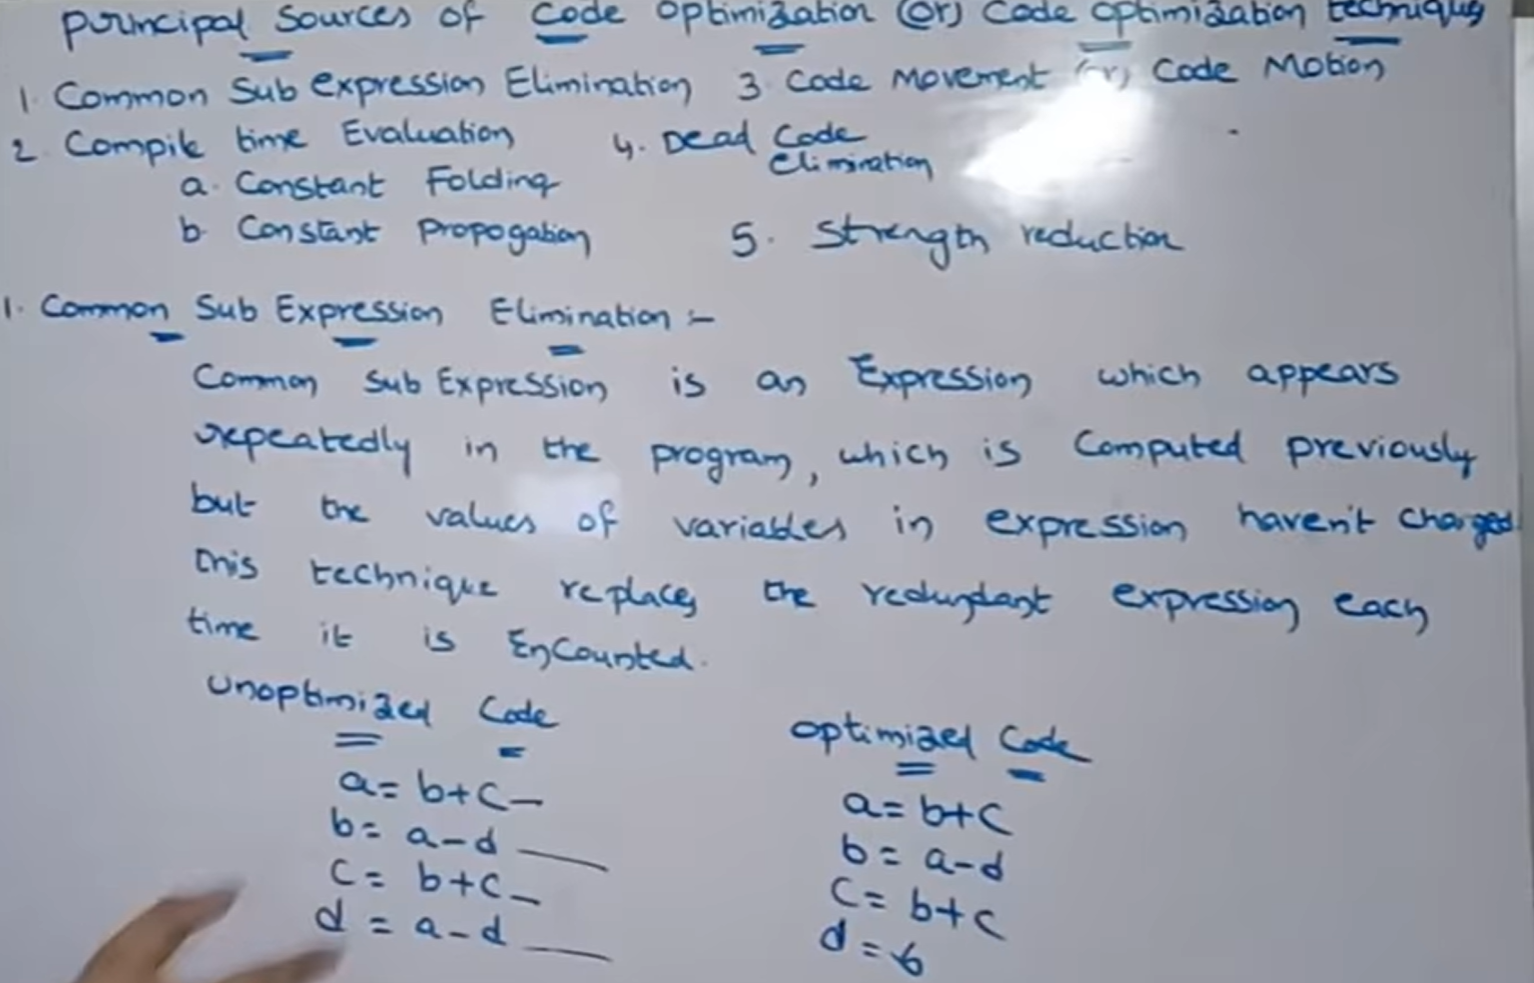 Principal Sources of Code Optimization (or) Code optimization techniques
1. Common Sub expression Elimination
2. Compile time Evaluation
a. Constant Folding
b. Constant Propogation
3. Code Movement (or) Code Motion
4. Dead Code
Elimination
5. Strength reduction
1. Common Sub Expression Elimination :-
Common Sub Expression is an Expression which appears
repeatedly in the program, which is Computed previously
but the values of variables in expression haven't changed
This technique replaces the redundant expression each
time it is Encounted.
Unoptimized Code
a = b+c
b = a-d
c = b+c
d = a-d
Optimized Code
a = b+c
b = a-d
c = b+c
d = b